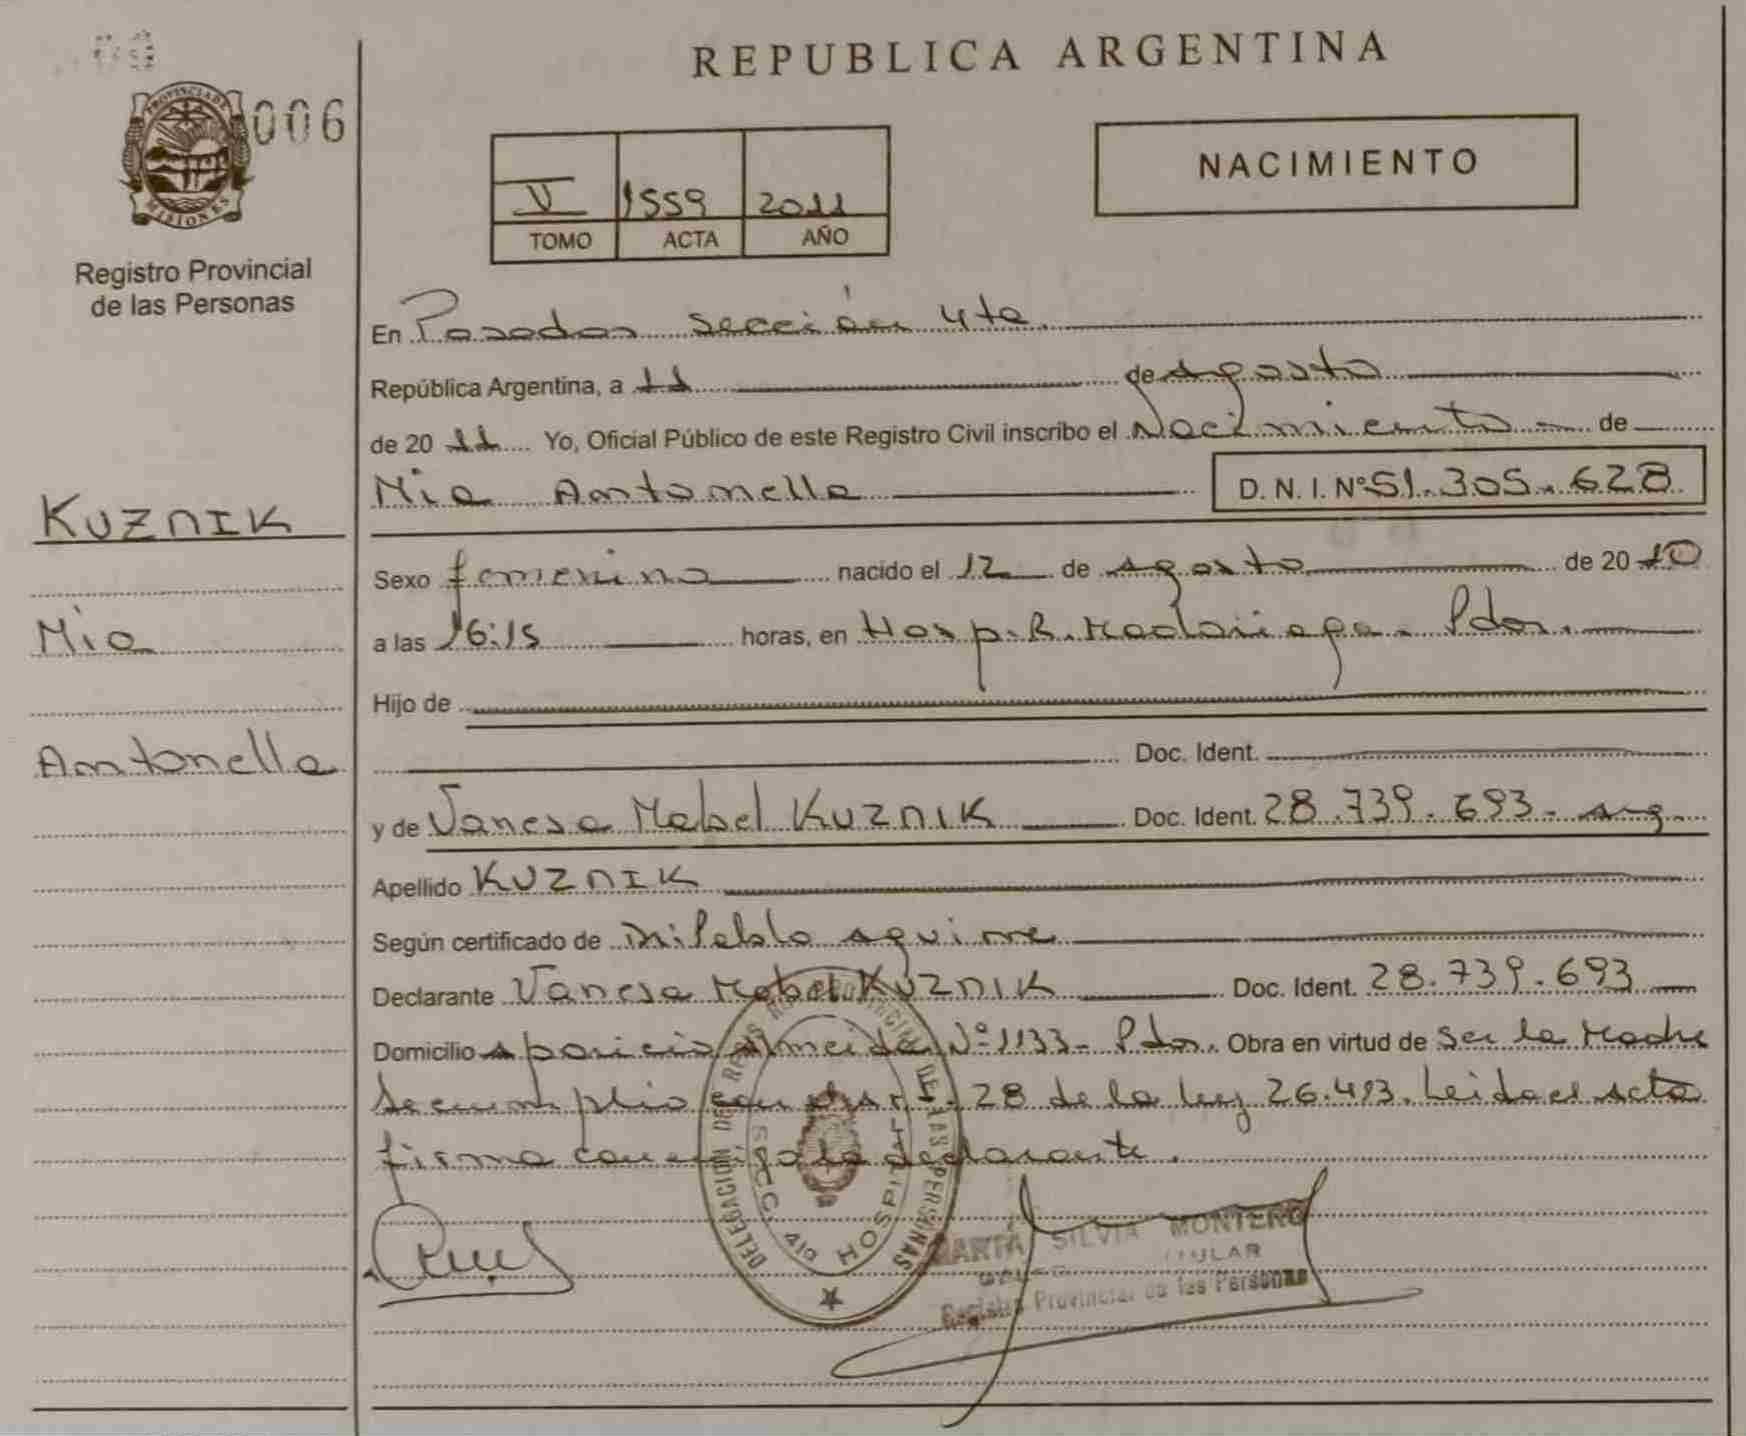 REPUBLICA ARGENTINA
PROVINCIA DE
MISIONES
006
Registro Provincial
de las Personas
V 1559 2011
TOMO ACTA AÑO
NACIMIENTO
KUZNIK
Mia
Antonella
En Posadas sección 4ta.
República Argentina, a 11 de Agosto
de 2011 Yo, Oficial Público de este Registro Civil inscribo el Nacimiento de
Mia Antonella D. N. I. Nº 51.305.628
Sexo femenino nacido el 12 de Agosto de 2010
a las 16:15 horas, en Hosp. R. Madariaga. Pdas.
Hijo de
Doc. Ident.
y de Vanesa Mabel KUZNIK Doc. Ident. 28.739.693- Arg.
Apellido KUZNIK
Según certificado de Aguirre
Declarante Vanesa Mabel KUZNIK Doc. Ident. 28.739.693
Domicilio Aparicio Almeida Nº 1133- Pdas. Obra en virtud de Ser la Madre
Se cumplió con el Art. 28 de la ley 26.413. Leida el Acta
firma conmigo la declarante.
DELEGACIÓN DEL REGISTRO PROVINCIAL DE LAS PERSONAS
SECC. 4ta HOSPITAL
MARTA SILVIA MONTERO
TITULAR
Registro Provincial de las Personas